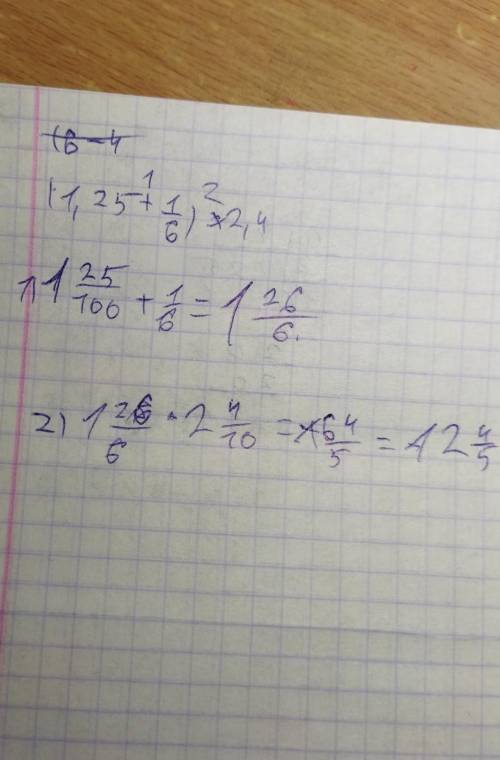 (1,25 + 1/6) × 2,4
1) 1 25/100 + 1/6 = 1 26/6.
2) 1 26/6 · 2 4/10 = 64/5 = 12 4/5